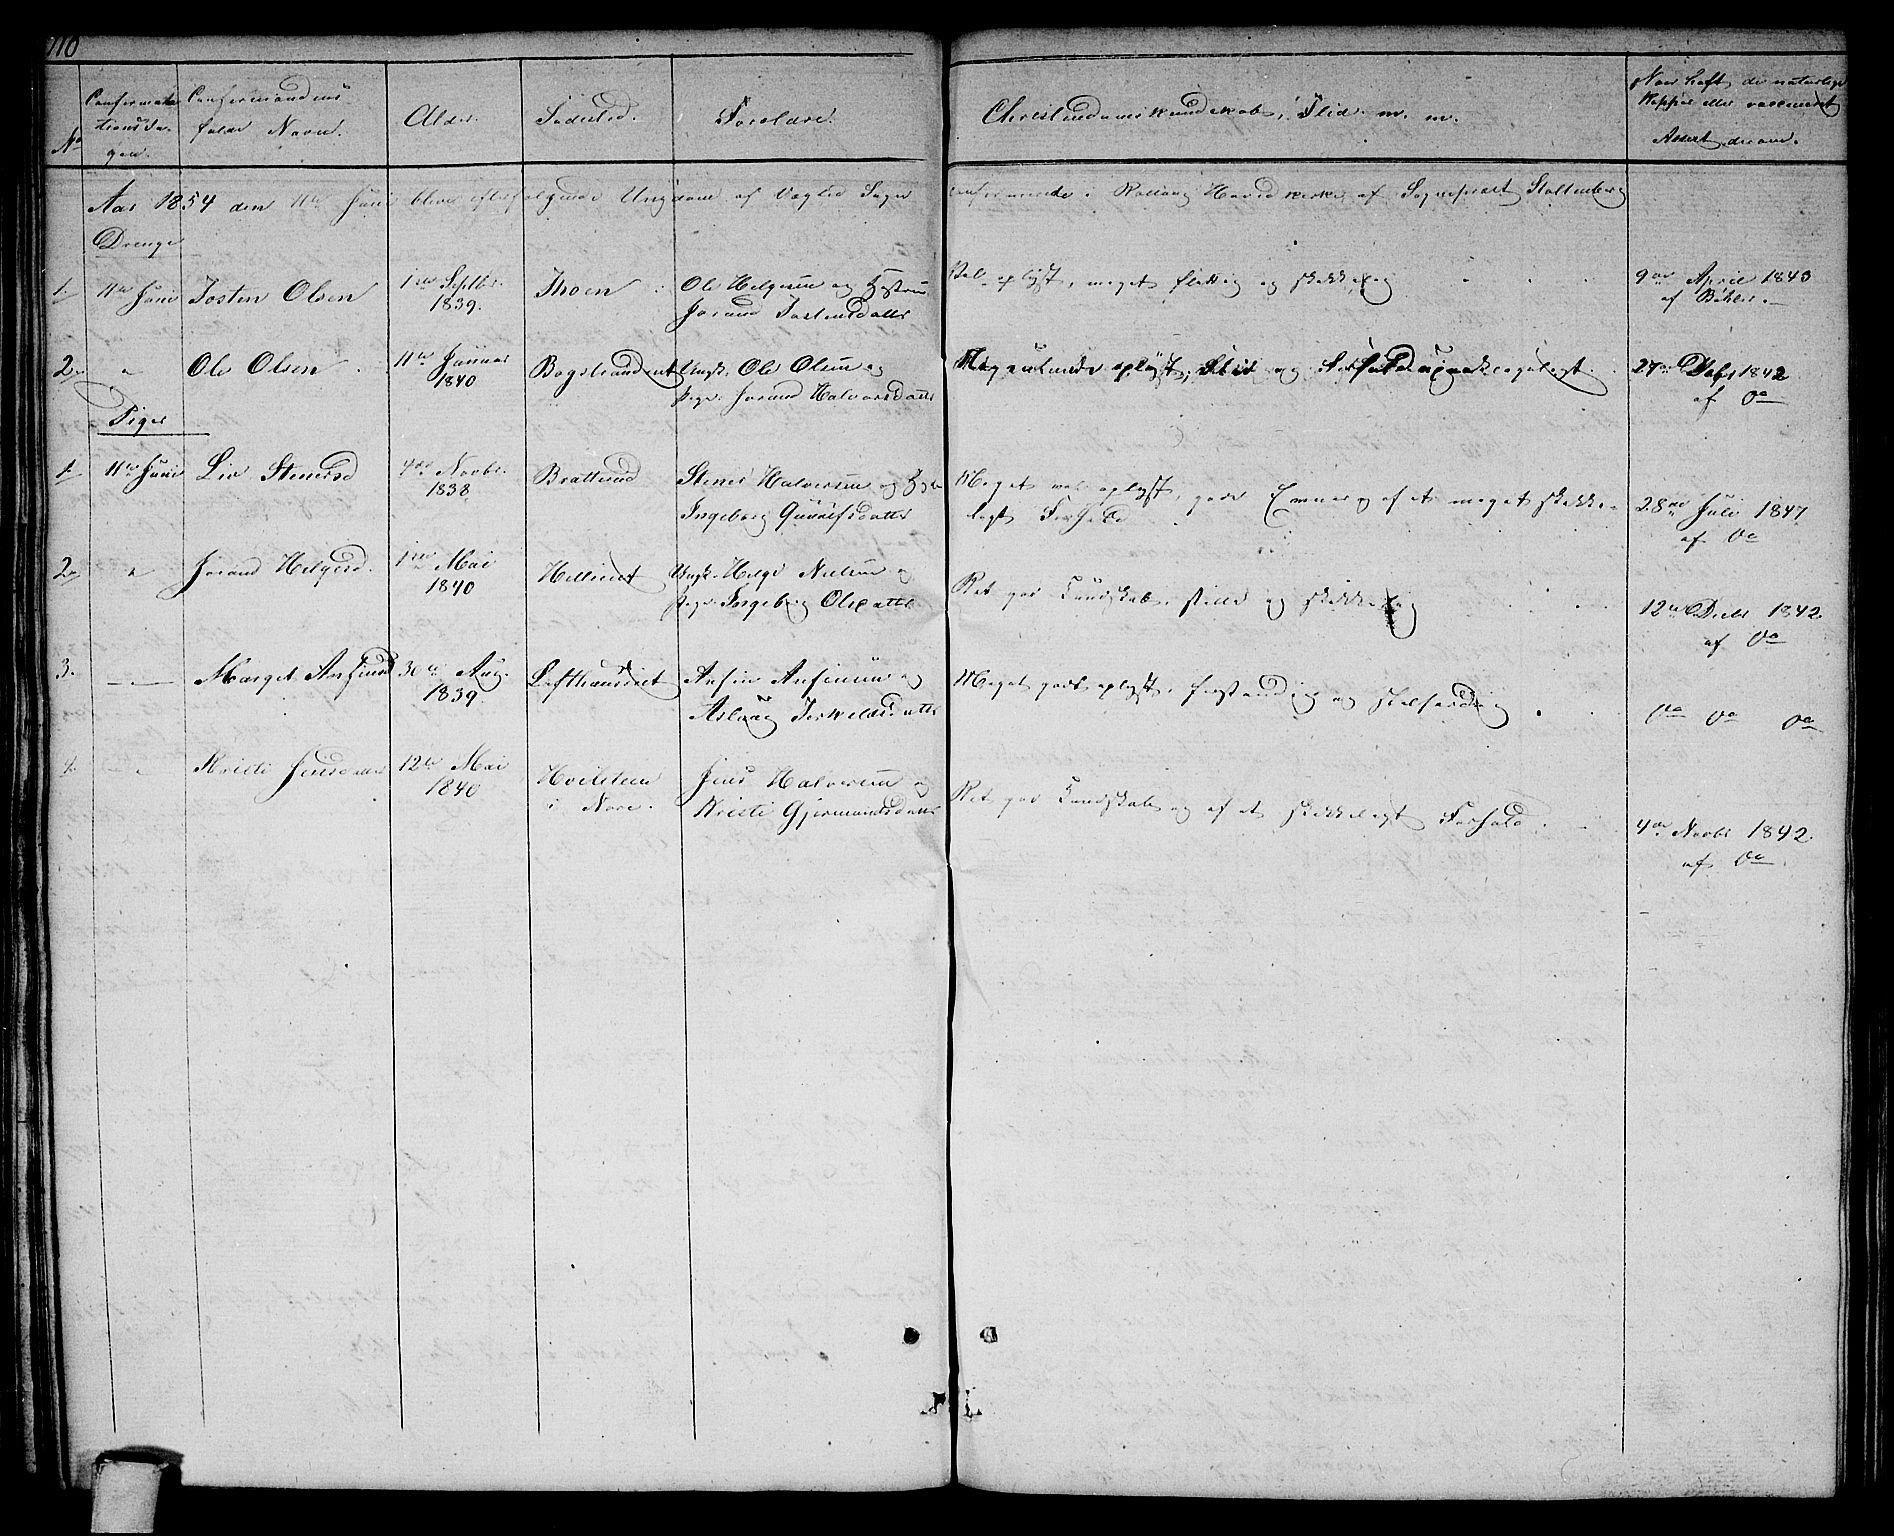 110
No
Confirmationsdagen.
Confirmandens fulde Navn.
Alder.
Fødested.
Forældre.
Christendomskundskab, Flid m. m.
Naar haft de naturlige Kopper eller vaccineret
Attest derom.
Aar 1854 den 11te Juni bleve efterfølgende Ungdom af Sogn
confirmerede i Rollag Hovedkirke af Sognepræst Stoltenberg
Drenge
1. 11te Juni Josten Olsen 1ste Septbr. 1839. Thoen Ole Helgesen og Hustru
Jorand Jostensdatter
Vel oplyst, meget flittig og skikkelig
9de April 1843
af Bøhler.
2. " Ole Olsen 11te Januar 1840 Bogstrandeiet Ungk. Ole Olsen og
Pige Jorand Halvorsdatter
oplyst, Flid og
27de Debr 1842
af Do
Piger
1. 11te Juni Liv Stenersd 4de Novbr. 1838. Bratterud Stener Halvorsen og
Ingeborg Gunulfsdatter
Meget vel oplyst, gode Evner og af et meget skikkeligt Forhold
28de Juli 1847
af Do
2. " Jorand Helgesd. 1ste Mai 1840 Ungk. Helge Nielsen og
Pige Ingeborg Olsdatter
Ret god Kundskab, stille og skikkelig
12te Decbr 1842.
af Do
3. " Marget Anfinsd 30te Aug. 1839. Anfin Anfinsen og
Aslaug Torkeldsdatter
Meget godt oplyst, forstandig og
Do Do Do
4. " Kristi Jensdatter 12te Mai 1840 Hvilsteen
i Nore. Jens Halvorsen og
Kristi Gjermundsdatter
Ret god Kundskab og af et skikkeligt Forhold
4de Novbr 1842.
af Do